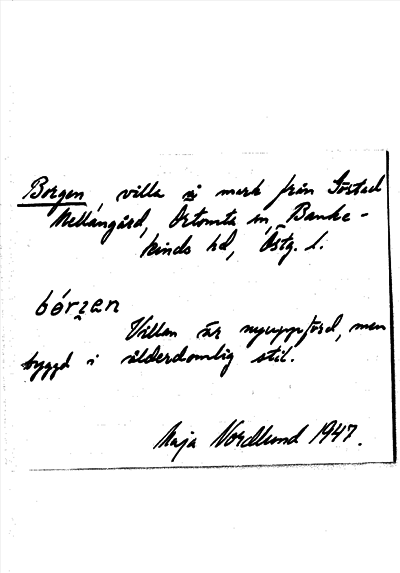 Borgen, villa å mark från Törstad
Mellangård, Örtomta sn, Banke-
kinds hd, Östg. l.
bórgen
Villan är nyuppförd, men
byggd i ålderdomlig stil.
Maja Nordlund 1947.